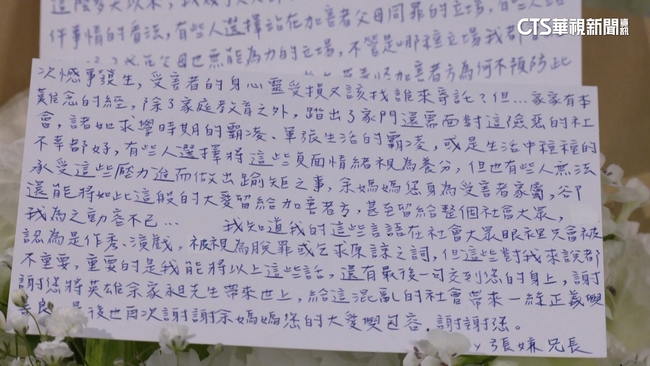 CTS華視新聞資訊
這麼多天以來,我
有些人選擇站在加害者父母同罪的立場,有些人站
件事情的看法,有些人
父母也無能為力的立場,不管是哪種立場我都
加害者方為何不預防此
次憾事發生,受害者的身心靈受損又該找誰來寄託?但…家家有本
難念的經,除了家庭教育之外,踏出了家門還需面對這險惡的社
會,諸如求學時期的霸凌、軍張生活的霸凌,或是生活中種種的
不幸都好,有些人選擇將這些負面情緒視為養分,但也有些人無法
承受這些壓力進而做出踰矩之事,余媽媽您身為受害者家屬,卻
還能將如此這般的大愛留給加害者方,甚至留給整個社會大眾,
我為之動容不已… 我知道我的這些言語在社會大眾眼裡只會被
認為是作秀、演戲,被視為脫罪或乞求原諒之詞,但這些對我來說都
不重要,重要的是我能將以上這些話,還有最後一句交到您的身上,謝
謝您將英雄余家昶先生帶來世上,給這混亂的社會帶來一絲正義與
善良,最後也再次謝謝余媽媽您的大愛與包容,謝謝您。
張嫌兄長